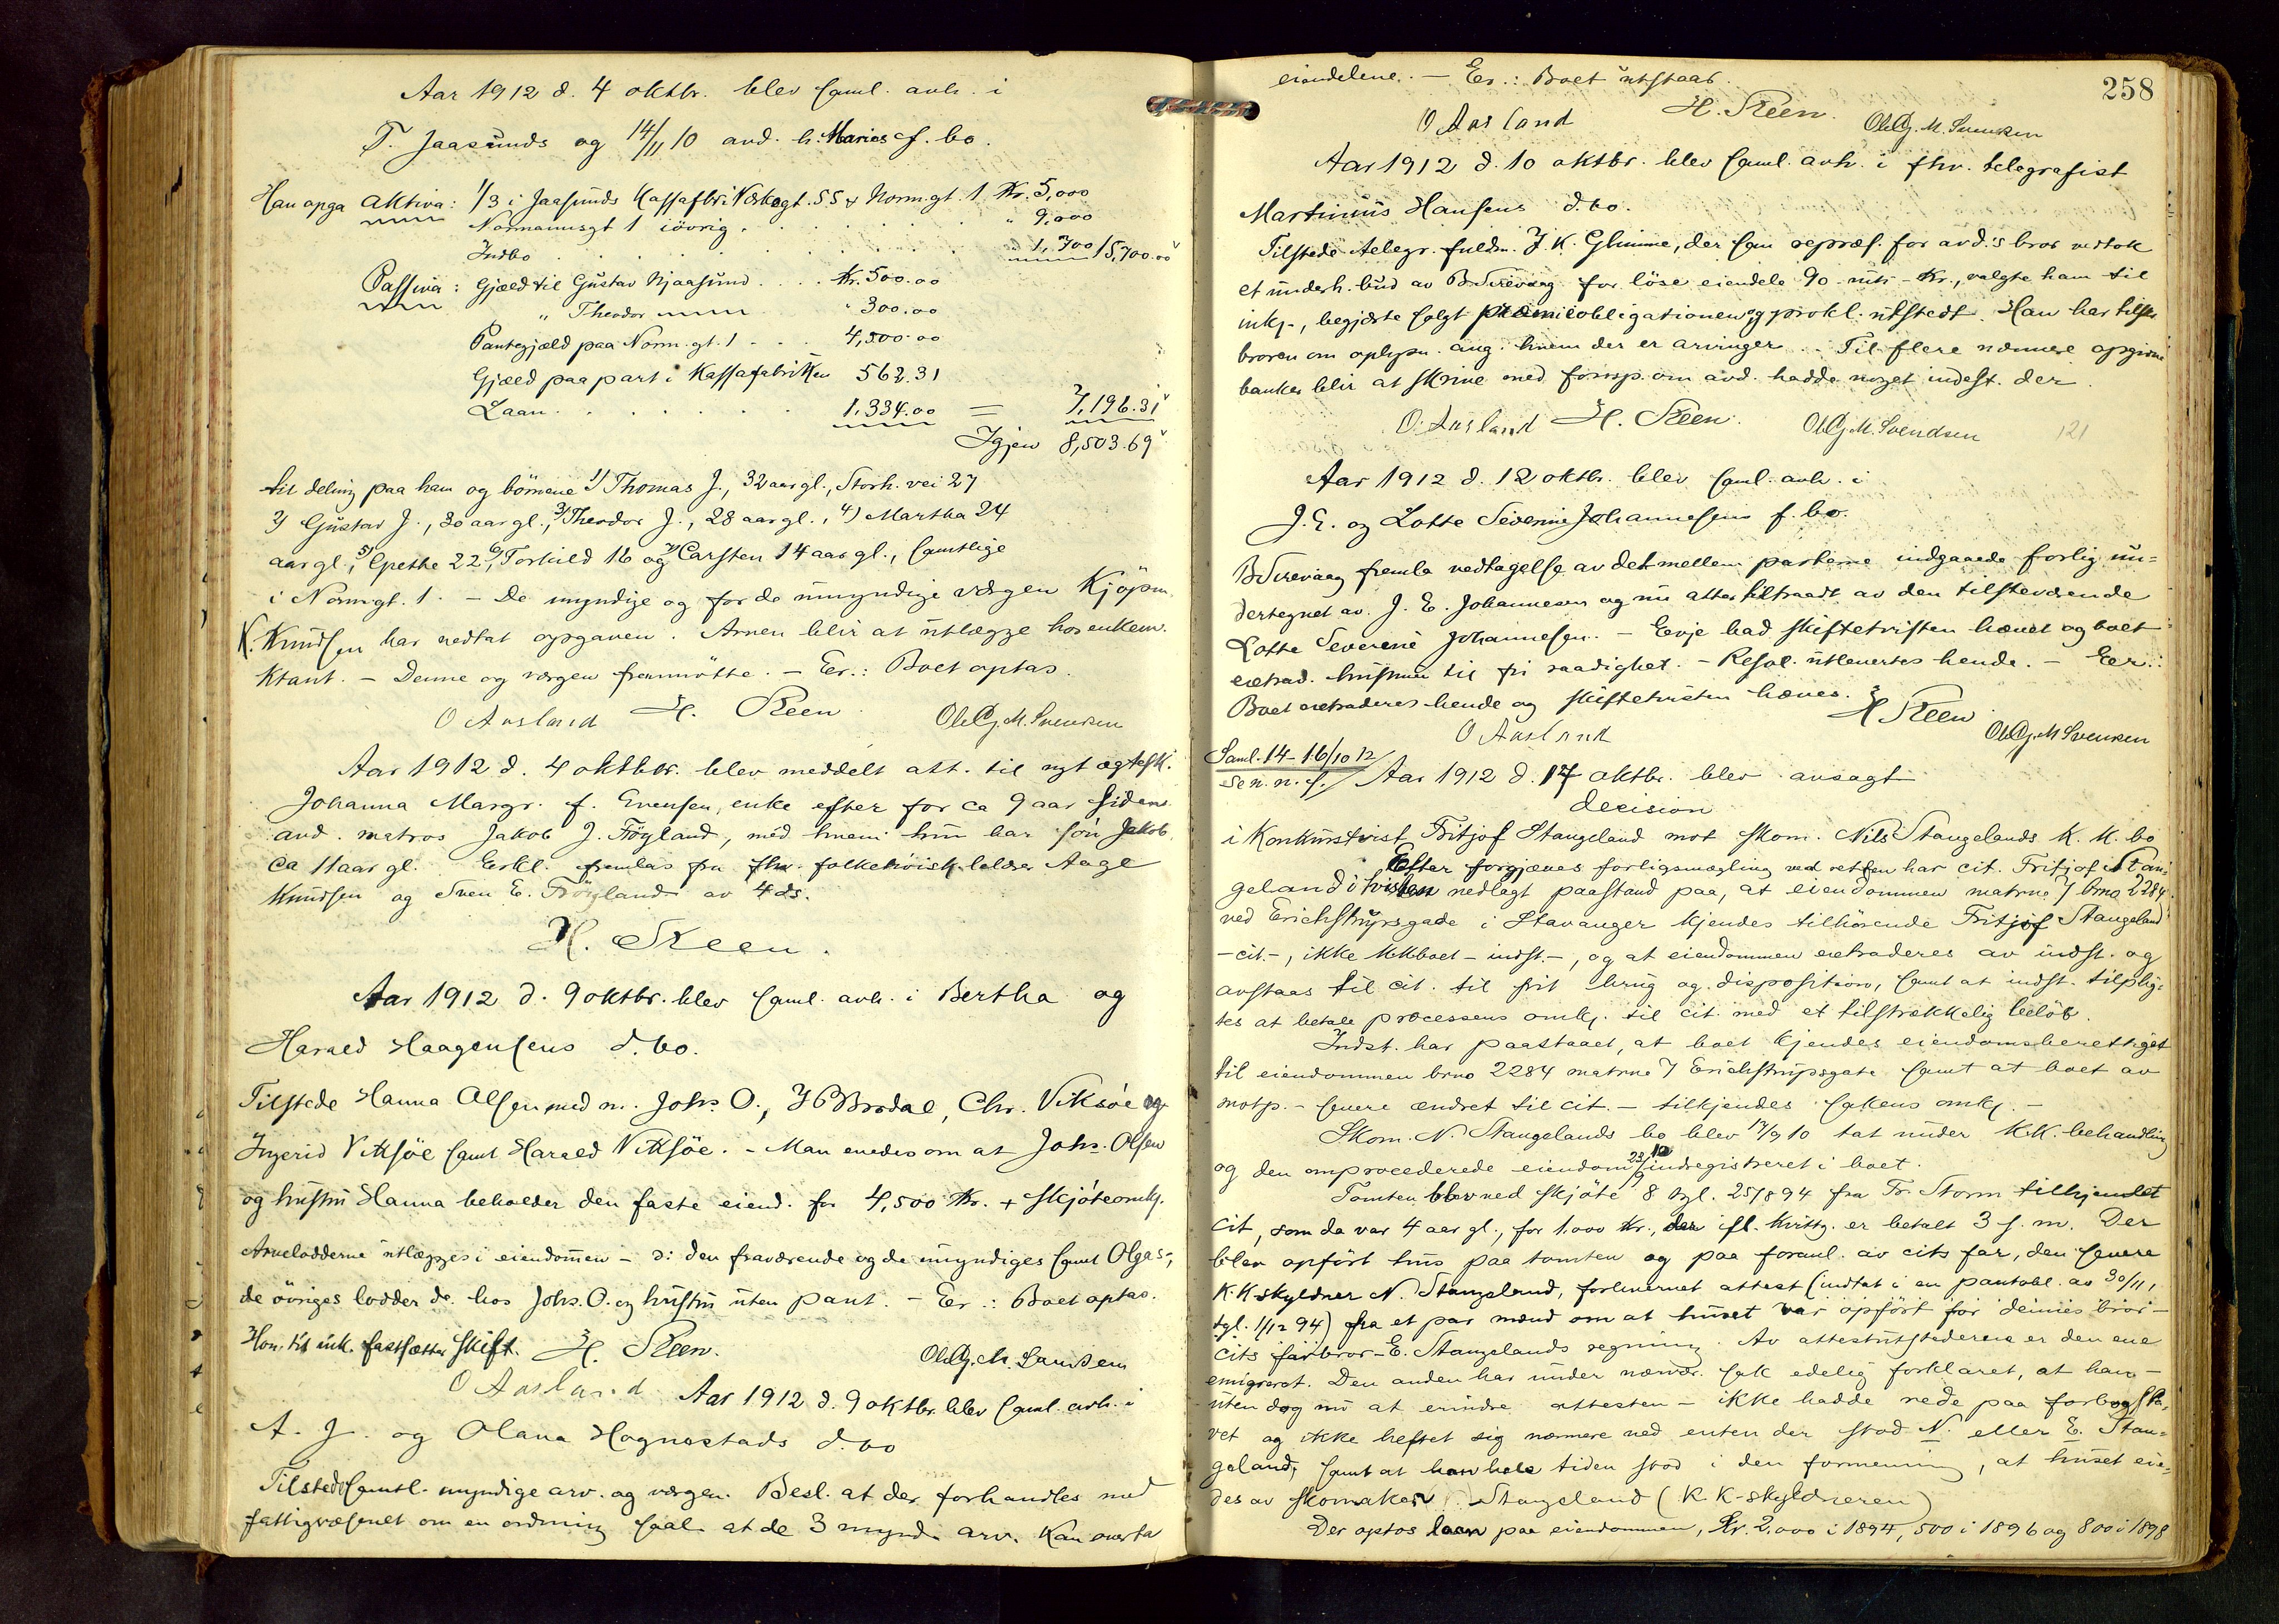 Aar 1912 d. 4 oktbr. blev saml. avh. i
T. Jaasunds og 14/11 10 avd. h. Maries f. bo.
Han opga Aktiva: 1/3 i Jaasunds Kassafbr. Norm.gt. 1 Kr. 5,000
Normannsgt 1 iövrig . . . " 9,000
Indbo . . . " 1,700 15,700.00
Passiva: Gjæld til Gustav Njaasund . . . . Kr. 500.00
" Theodor " 300.00
Pantegjæld paa Norm.gt. 1 . . . 4,500.00
Gjæld paa part i Kassafabrikken 562.31
Laan . . . . . . . 1,334.00 = 7,196.31
Igjen 8,503.69
til deling paa ham og börnene 1) Thomas J., 32 aar gl., Storh. vei 27
2) Gustav J., 30 aar gl., 3) Theodor J., 28 aar gl., 4) Martha 24
aar gl., 5) Grethe 22, 6) Torkild 16 og 7) Carsten 14 aar gl., samtlige
i Norm.gt. 1. – De myndige og for de umyndige værgen Kjöpm.
K. Knudsen har vedtat opgaven. Arven blir at utlægge hos enkem.
Ktant. – Denne og værgen fremmötte. – Er.: Boet optas.
O Aasland H. Steen Ole Gj. M. Svendsen
Aar 1912 d. 4 oktbr. blev meddelt att. til nyt ægtesk.
Johanna Margr. f. Evensen, enke efter for ca 9 aar siden
avd. matros Jakob J. Tögland, med hvem hun har sön Jakob
ca 11 aar gl. Erkl. fremlas fra fhv. folkehöisk. Aage
Knudsen og Sven E. Tögland av 4 ds.
H. Steen.
Aar 1912 d. 9 oktbr. blev saml. avh. i Bertha og
Harald Haagensens d. bo.
Tilstede Hanna Olsen med m. Johs. O., Chr. Viksöe og
Ingerid Viksöe samt Harald Viksöe. – Man enedes om at Johs. Olsen
og hustru Hanna beholder den faste eiend. for 4,500 Kr. + skjöteomk.
Arvelodderne utlægges i eiendommen – ɔ: den fraværende og de umyndiges samt Olgas –,
de övriges lodder do. hos Johs. O. og hustru uten pant. – Er.: Boet optas.
Hon. til ink. fastsættes skift. H. Steen. Ole Gj. M. Svendsen
O Aasland Aar 1912 d. 9 oktbr. blev saml. avh. i
A. J. og Olana Hognestads d. bo
Tilstede samtl. myndige arv. og værgen. Besl. at der forhandles med
fattigvæsenet om en ordning saal. at de 3 mynd. arv. kan overta
258
eiendelene. – Er.: Boet utstaar.
O Aasland H. Steen. Ole Gj. M. Svendsen
Aar 1912 d. 10 oktbr. blev saml. avh. i fhv. telegrafist
Martinius Hansens d. bo.
Tilstede telegr. fuldm. J. K. Glimme, der som repræs. for avd.s bror vedtok
et underh. bud av B. Sirevaag for löse eiendele 90 – nitti – Kr., valgte ham til
ink., begjærte solgt præmieobligationen og prokl. utstedt. Han har tilskr.
broren om oplysn. ang. hvem der er arvinger. Til flere nærmere opgivne
banker blir at skrive med foresp. om avd. hadde noget indest. der.
O. Aasland H. Steen. Ole Gj. M. Svendsen 121
Aar 1912 d. 12 oktbr. blev saml. avh. i
J. E. og Lotte Severine Johannesens f. bo.
B. Sirevaag fremla vedtagelse av det mellem parterne indgaaede forlig un=
dertegnet av J. E. Johannesen og nu atter tiltraadt av den tilstedeværende
Lotte Severine Johannesen. – Evje bad skiftetvisten hævet og boet
extrad. hustruen til fri raadighet. – Resol. utlevertes hende. – Er.:
Boet extraderes hende og skiftetvisten hæves. H Steen
O Aasland Ole Gj. M Svendsen
Saml. 14–16/10 12
se n. n. f. Aar 1912 d. 17 oktbr. blev avsagt
decision
i Konkurstvist Fritjof Stangeland mot skom. Nils Stangelands K. K. bo
Efter forgjæves forligsmægling ved retten har cit. Fritjof Stan=
geland i tvisten nedlagt paastand paa, at eiendommen matrno 7 brno 2284
ved Erichstrupsgade i Stavanger kjendes tilhörende Fritjof Stangeland
– cit. –, ikke KKboet – indst. –, og at eiendommen extraderes av indst. og
avstaas til cit. til frit brug og disposition, samt at indst. tilplig=
tes at betale processens omk. til cit. med et tilstrækkelig belöb.
Indst. har paastaaet, at boet kjendes eiendomsberettiget
til eiendommen brno 2284 matrno 7 Erichstrupsgate samt at boet av
motp. – senere ændret til cit. – tilkjendes sakens omk. –
Skom. N. Stangelands bo blev 17/9 10 tat under K.K. behandling
og den omprocederede eiendom 23/9 10 indregistreret i boet.
Tomten blev ved skjöte 8 tgl. 25/8 94 fra Fr. Storm tilkjendet
cit, som da var 4 aar gl., for 1.000 Kr., der ifl. kvittg. er betalt 3 s. m. Der
blev opfört hus paa tomten og paa foranl. av cits far, den senere
K.K skyldner N. Stangeland, forlevernet attest (indtat i en pantobl. av 30/11,
tgl. 1/12 94) fra et par mænd om at huset var opfört for dennes bror –
cits farbror – E. Stangelands regning. Av attestutstederne er den ene
emigreret. Den anden har under nærvær. sak edelig forklaret, at han –
uten dog nu at erindre attesten – ikke hadde rede paa forbogsta=
vet og ikke heftet sig nærmere ved enten der stod N. eller E. Stan=
geland, samt at han hele tiden stod i den formening, at huset eie=
des av skomaker Stangeland (K K-skyldneren)
Der optos laan paa eiendommen, Kr. 2,000 i 1894, 500 i 1896 og 800 i 1898